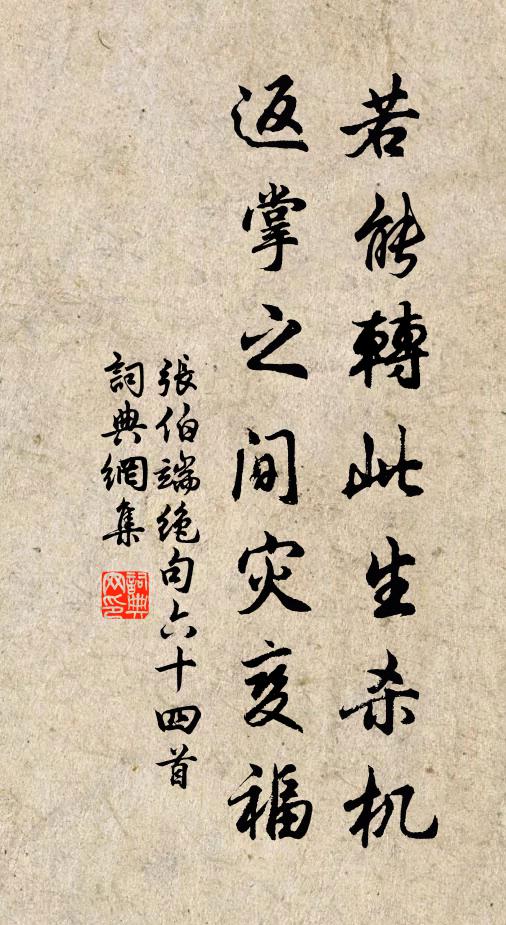 若能轉此生杀机
返掌之间灾变福
張伯端绝句六十四首
詞典網集
詞典
网印